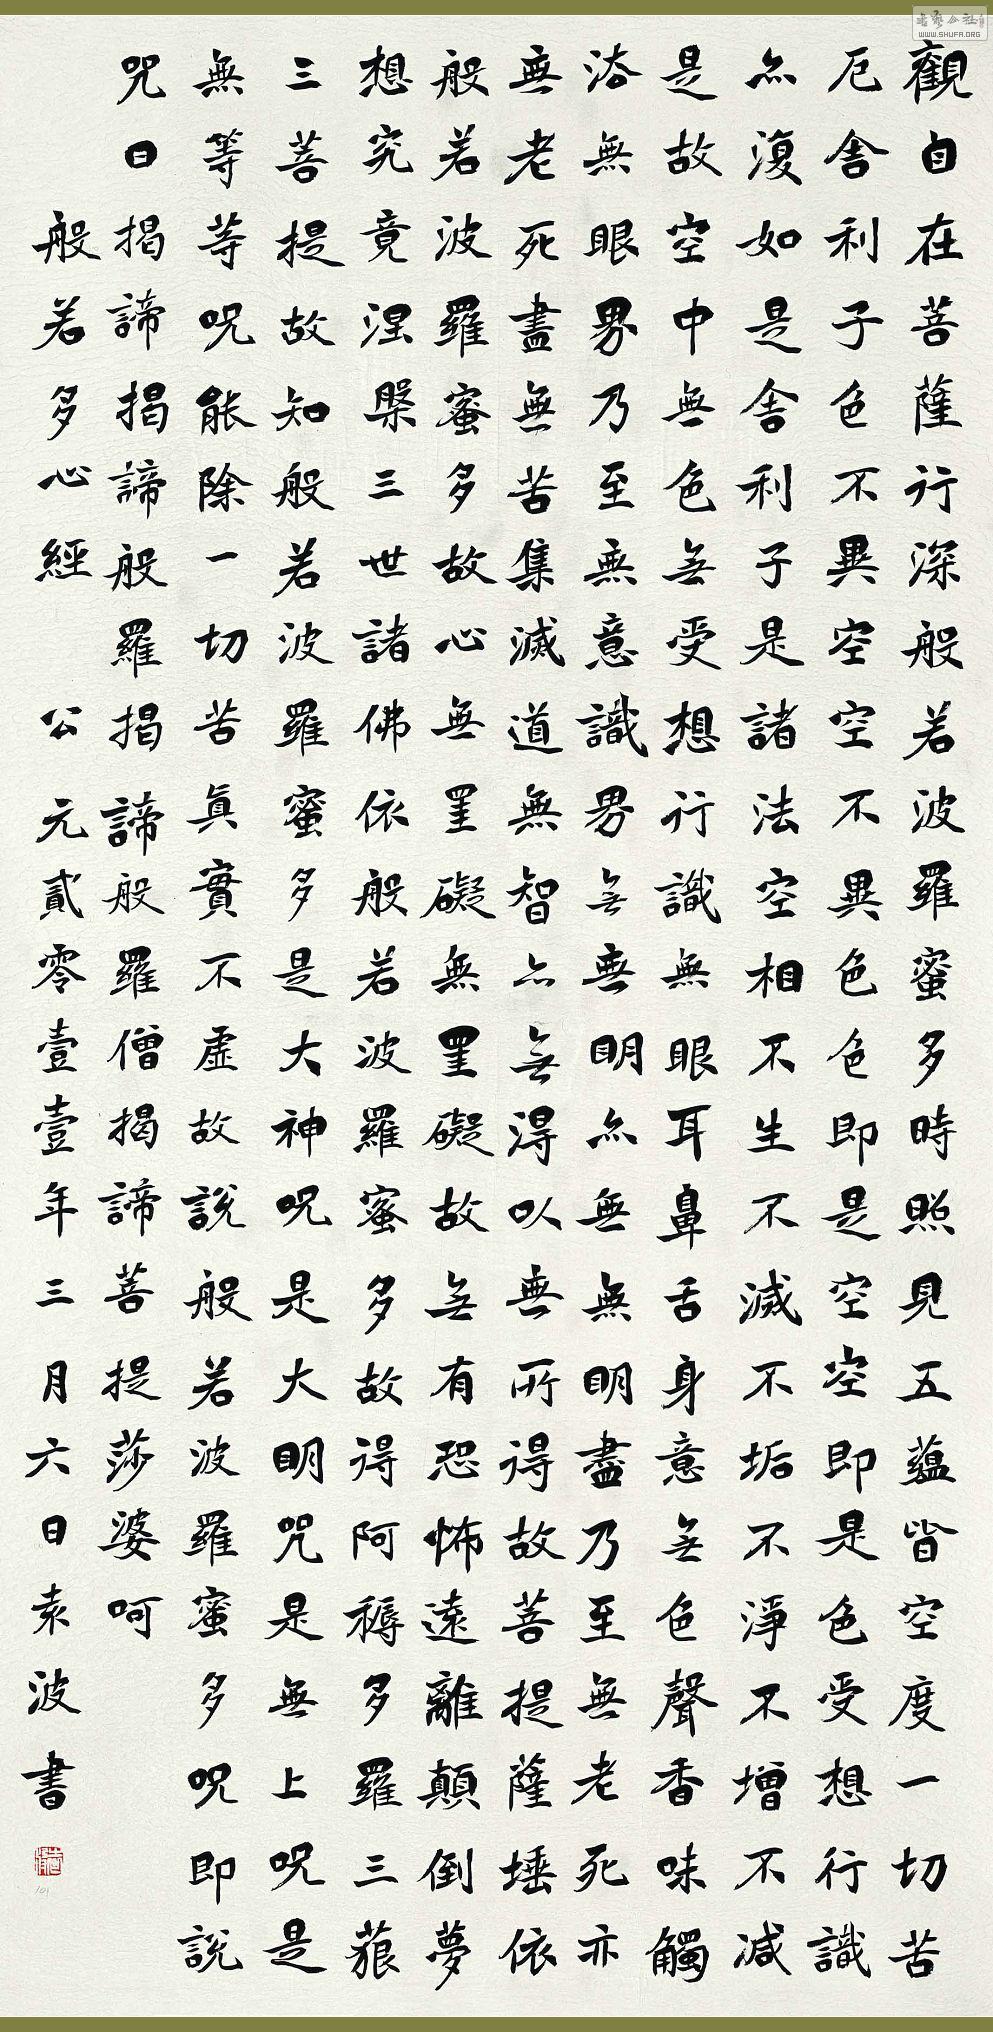 觀自在菩薩行深般若波羅蜜多時照見五蘊皆空度一切苦
厄舍利子色不異空空不異色色即是空空即是色受想行識
亦復如是舍利子是諸法空相不生不滅不垢不淨不增不減
是故空中無色無受想行識無眼耳鼻舌身意無色聲香味觸
法無眼界乃至無意識界無無明亦無無明盡乃至無老死亦
無老死盡無苦集滅道無智亦無得以無所得故菩提薩埵依
般若波羅蜜多故心無罣礙無罣礙故無有恐怖遠離顛倒夢
想究竟涅槃三世諸佛依般若波羅蜜多故得阿耨多羅三藐
三菩提故知般若波羅蜜多是大神咒是大明咒是無上咒是
無等等咒能除一切苦真實不虛故說般若波羅蜜多咒即說
咒曰揭諦揭諦般羅揭諦般羅僧揭諦菩提莎婆呵
般若多心經 公元貳零壹壹年三月六日袁波書
WWW.SHUFA.ORG